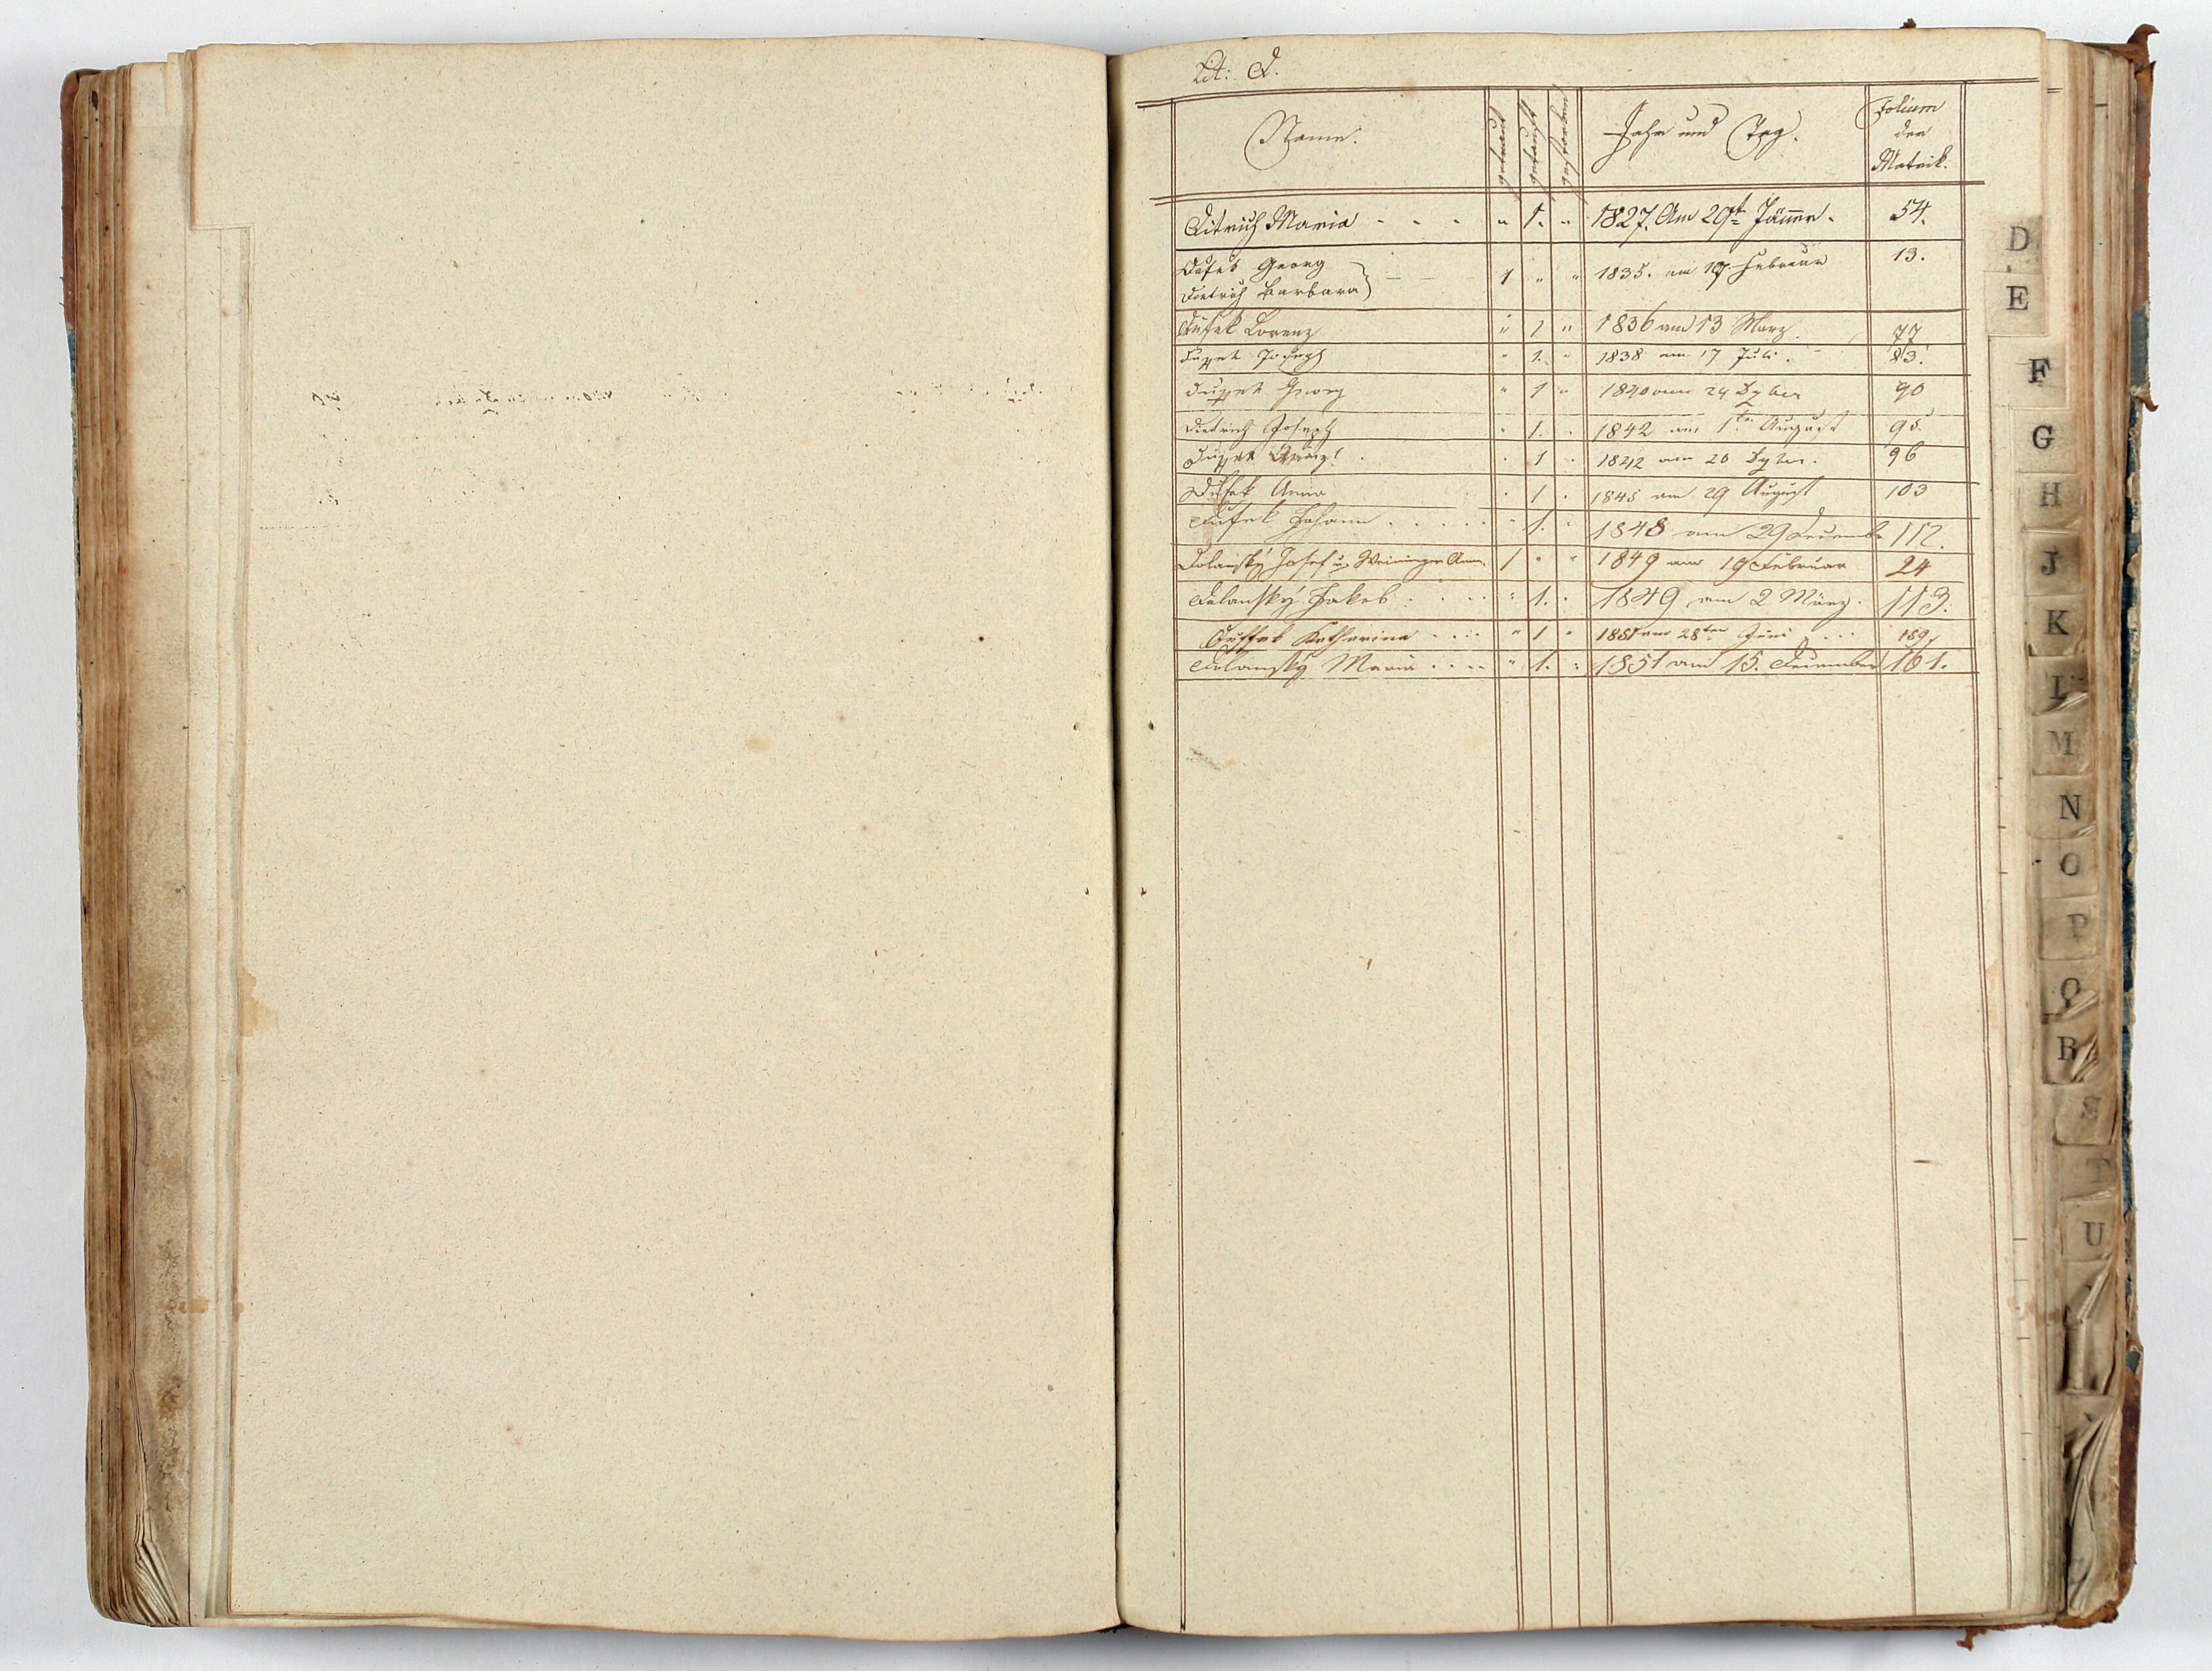 Lit: D.
Name. getraut getauft gestorben Jahr und Tag. Folium
der
Matrik.
Ditrich Maria - - - " 1. " 1827. Am 29t Jänner. 54.
Dusek Georg
Dietrich Barbara } 1 " " 1835. am 17 Februar 13.
Dusek Lorenz " 1 " 1836 am 13 März 77
Duschek Joseph " 1. " 1838 am 17 Juli. 83.
Georg " 1 " 1840 am 24 90
Dietrich Joseph " 1. " 1842 am 1ten August 95.
" 1 " 1842 am 20 96
Dusek Anna " 1 " 1845 am 29 August 103
Dusek Johann . . . . " 1. " 1848 am 29 Dezember 112.
Dolanský Josef u. Weininger Anna. 1 " " 1849 am 19 Februar 24
Dolanský Jakob . . . . " 1. " 1849 am 2 März. 113.
Katharina . . . . " 1 " 1851 am 28ten Juni . . . 159
Dolanský Maria . . . . " 1. " 1851 am 15. Dezember 161.
D
E
F
G
H
J
K
L
M
N
O
P
Q
R
S
T
U